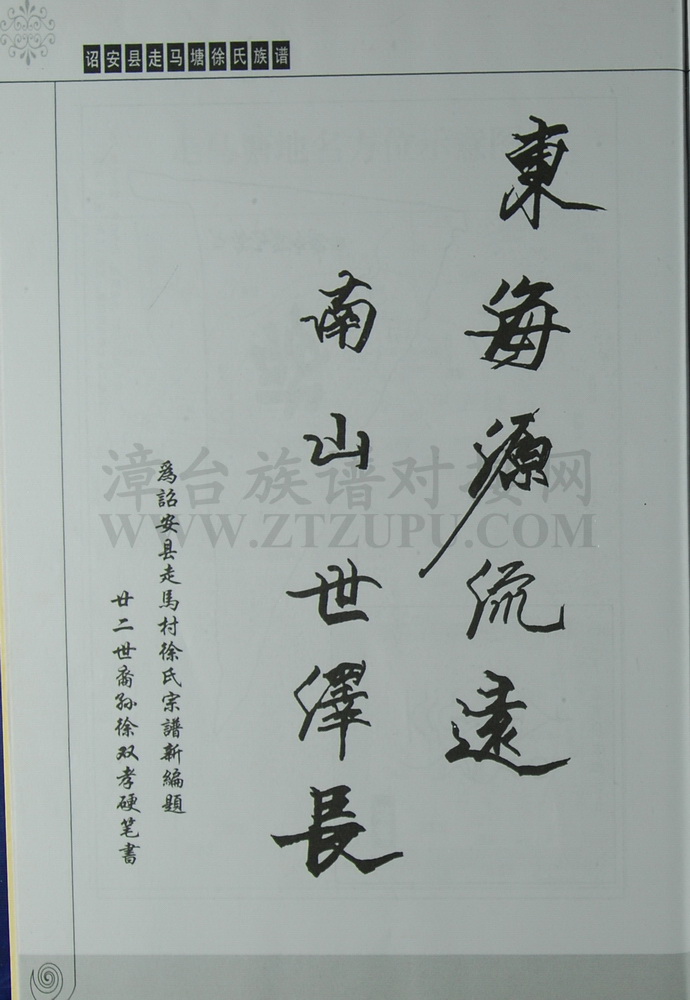 诏安县走马塘徐氏族谱
東海源流遠
南山世澤長
爲詔安县走馬村徐氏宗譜新編題
廿二世裔孙徐双孝硬笔書
漳台族谱对接网
WWW.ZTZUPU.COM